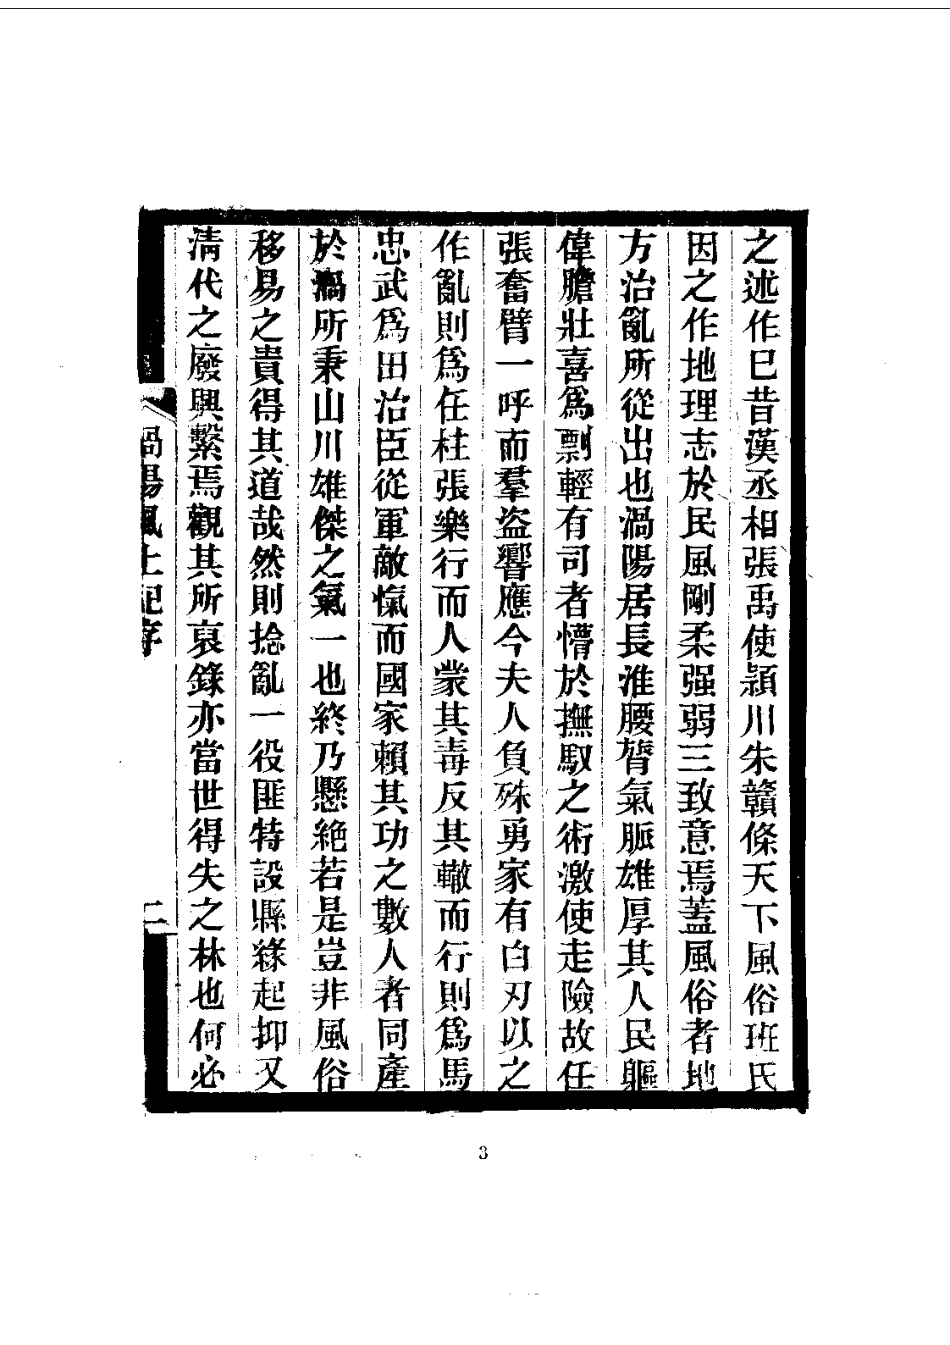 之述作巳昔漢丞相張禹使潁川朱贛條天下風俗班氏
因之作地理志於民風剛柔强弱三致意焉蓋風俗者地
方治亂所從出也渦陽居長淮腰膂氣脈雄厚其人民軀
偉膽壯喜爲剽輕有司者懵於撫馭之術激使走險故任
張奮臂一呼而羣盜響應今夫人負殊勇家有白刃以之
作亂則爲任柱張樂行而人蒙其毒反其轍而行則爲馬
忠武爲田治臣從軍敵愾而國家賴其功之數人者同產
於渦所秉山川雄傑之氣一也終乃懸絶若是豈非風俗
移易之貴得其道哉然則捻亂一役匪特設縣緣起抑又
清代之廢興繫焉觀其所裒錄亦當世得失之林也何必
渦陽風土記序
二
3